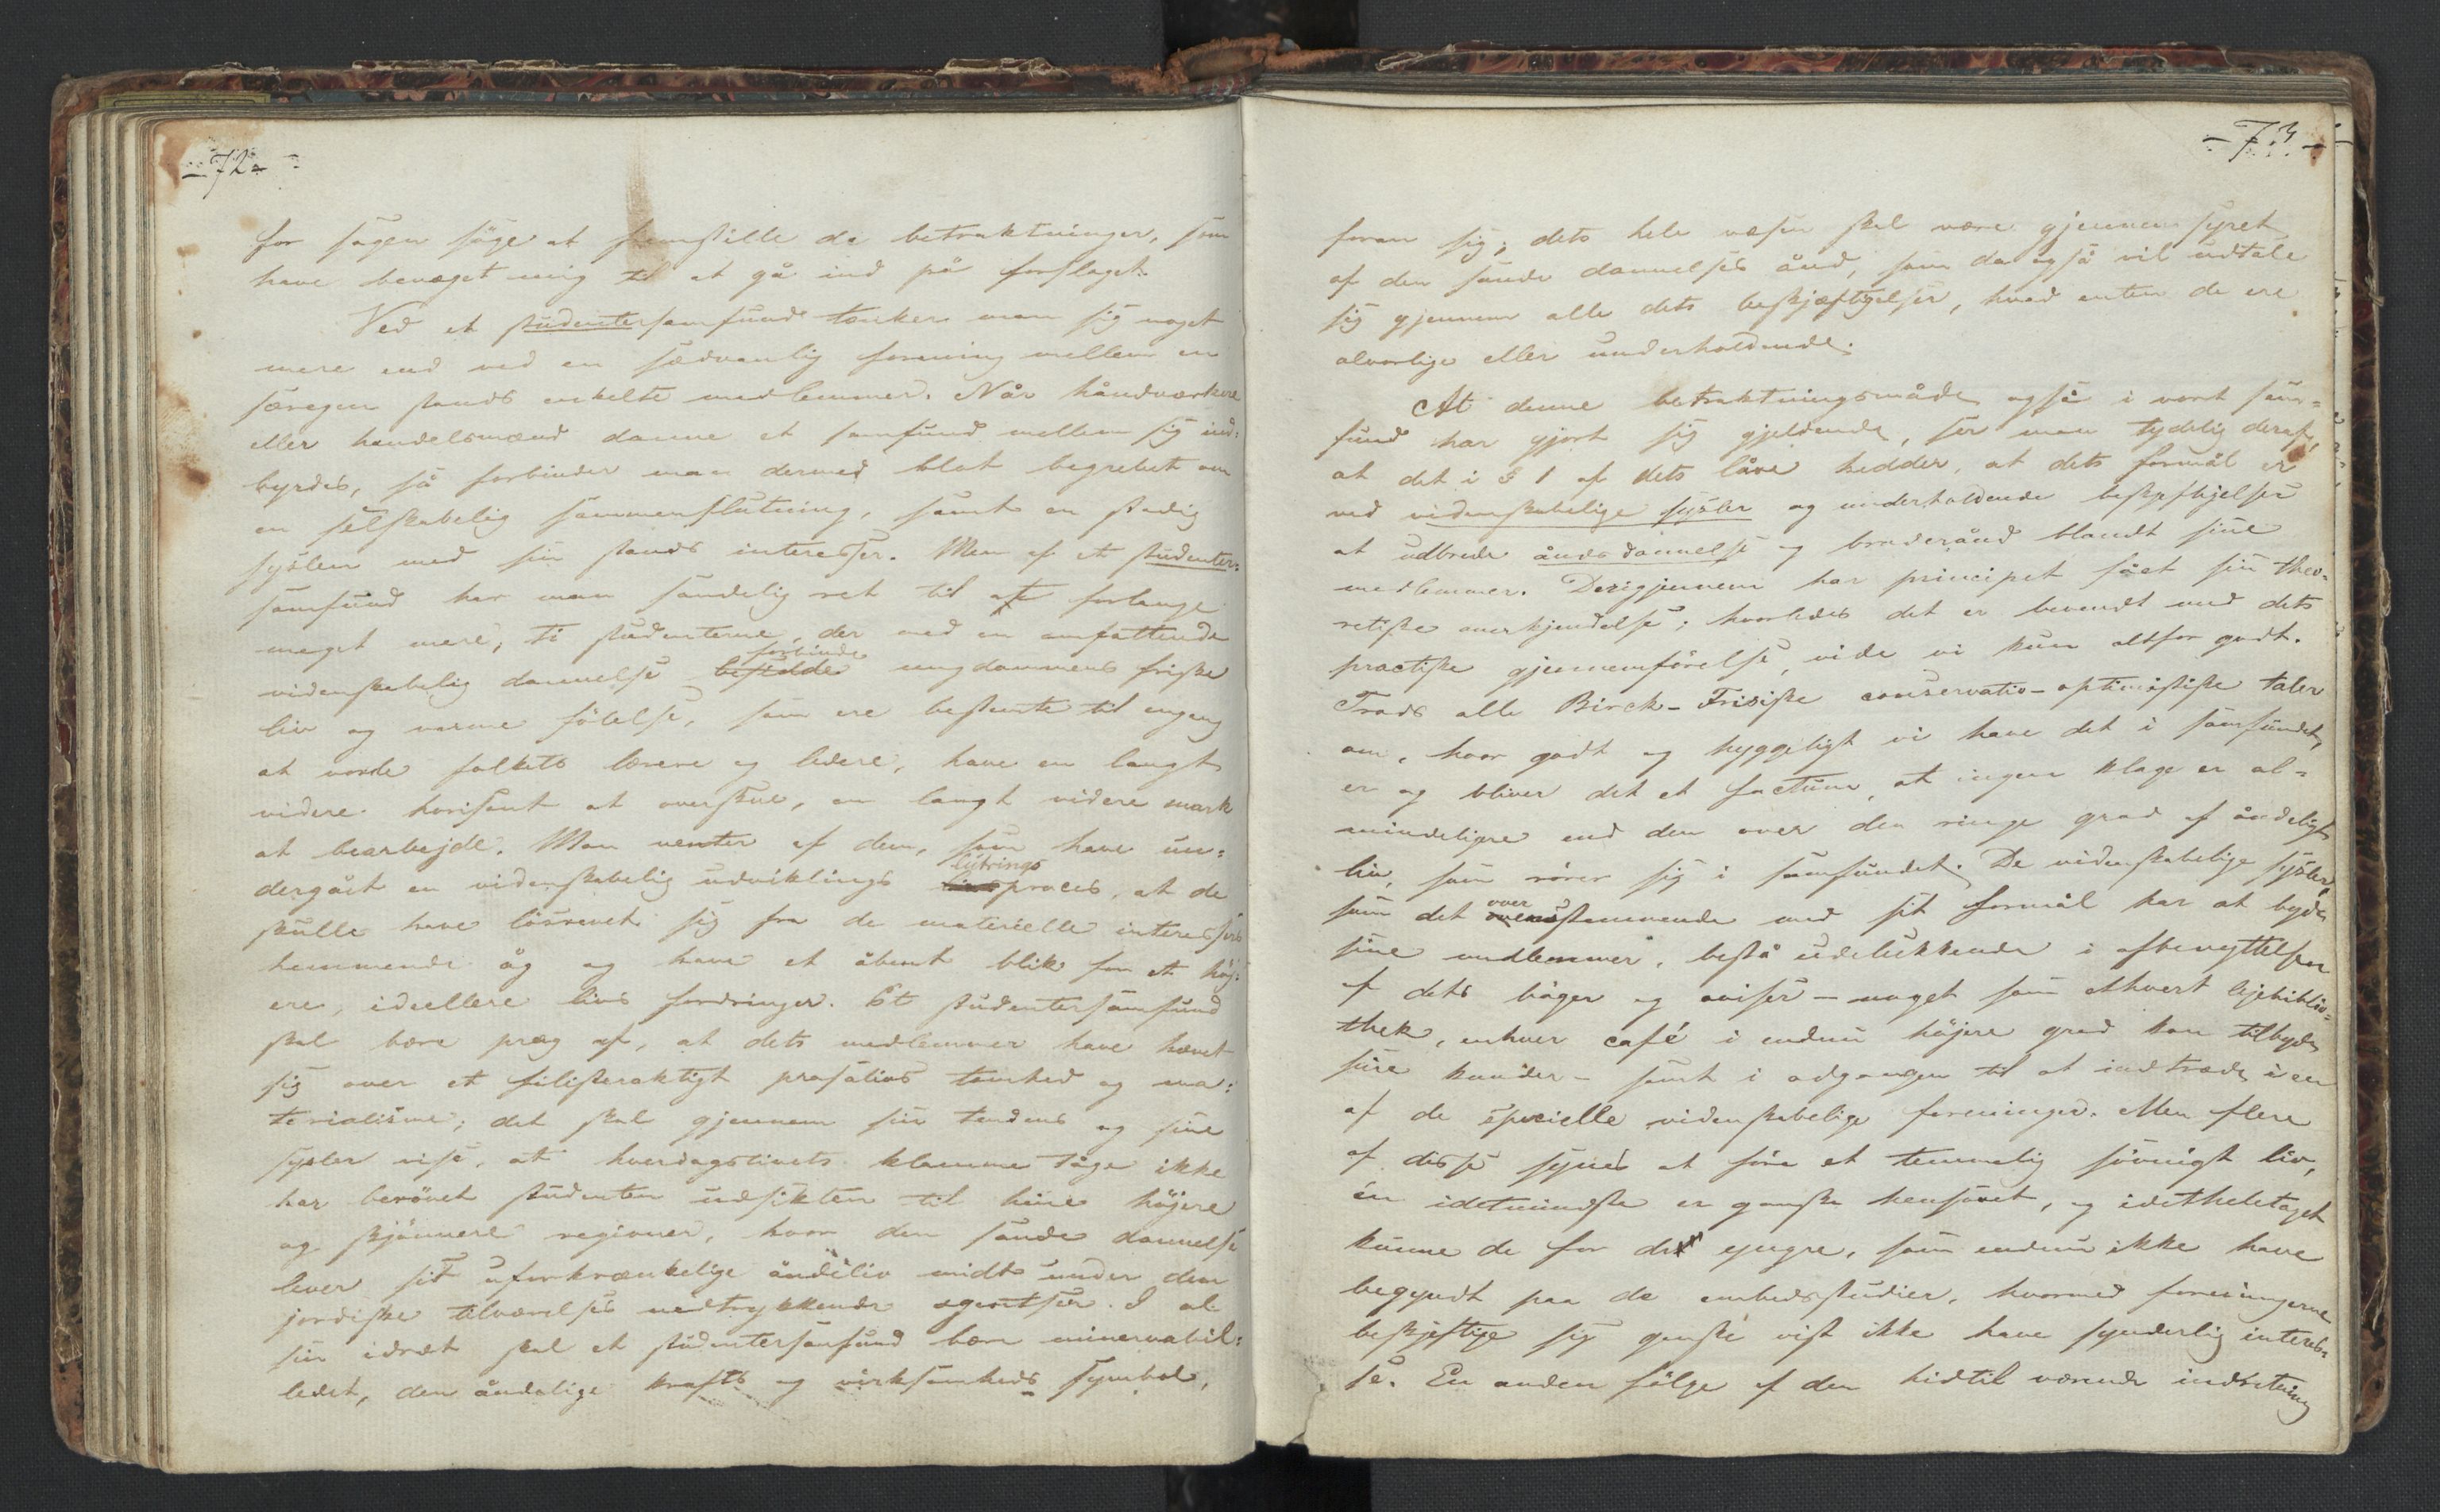 - 72 -
for sagen söge at fremstille de betraktninger, som
have bevæget mig til at gå ind på forslaget.
Ved et studentersamfund tænker man sig noget
mere end ved en sædvanlig forening mellem en
særegen stands enkelte medlemmer. Når håndværkere
eller handelsmænd danne et samfund mellem sig ind:
byrdes, så forbinder man dermed blot begrebet om
en selskabelig sammenslutning, samt en stadig
syslen med sin stands interesser. Men af et studenter:
samfund har man sandelig ret til at forlange
meget mere; ti studenterne, der med en omfattende
forbinde
videnskabelig dannelse besidde ungdommens friske
liv og varme fölelse, som ere bestemte til engang
at vorde folkets lærere og ledere, have en langt
videre horisont at overskue, en langt videre mark
at bearbejde. Man venter af dem, som have un:
lytrings
dergået en videnskabelig udviklings proces, at de
skulle have lösrevet sig fra de materielle interessers
hemmende åg og have et åbent blik for et höj:
ere, ideellere livs fordringer. Et studentersamfund
skal bære præg af, at dets medlemmer have hævet
sig over et filisteraktigt prosalivs tomhed og ma:
terialisme; det skal gjennem sin tendens og sine
sysler vise, at hverdagslivets klamme tåge ikke
har berövet studenten udsikten til hine höjere
og skjönnere regioner, hvor den sande dannelse
lever sit uforkrænkelige åndeliv midt under den
jordiske tilværelses nedtrykkende . I al
sin idræt skal et studentersamfund bære minervabil:
ledet, den åndelige krafts og virksomheds symbol,
- 73 -
foran sig; dets hele væsen skal være gjennemsyret
af den sande dannelses ånd, som da også vil udtale
sig gjennem alle dets beskjæftigelser, hvad enten de ere
alvorlige eller underholdende.
At denne betraktningsmåde også i vort sam=
fund har gjort sig gjeldende, ser man tydelig deraf,
at det i § 1 af dets låve hedder, at dets formål er
ved videnskabelige sysler og underholdende beskjeftigelser
at udbrede åndsdannelse og broderånd blandt sine
medlemmer. Derigjennem har principet fået sin theo=
retiske anerkjendelse; hvorledes det er bevendt med dets
practiske gjennemförelse, vide vi kun altfor godt.
Trods alle Birck-Frisiske conservativ-optimistiske taler
om, hvor godt og hyggeligt vi have det i samfundet,
er og bliver det et factum, at ingen klage er al=
mindeligre end den over den ringe grad af åndeligt
liv, som rörer sig i samfundet. De videnskabelige sysler,
over
som det overensstemmende med sit formål har at byde
sine medlemmer, bestå udelukkende i afbenyttelsen
af dets böger og aviser - noget som ethvert lejebiblio=
thek, enhver café i endnu höjere grad kan tilbyde
sine kunder - samt i adgangen til at indtræde i en
af de specielle videnskabelige foreninger. Men flere
af disse synes at före et temmelig sövnigt liv,
én idetmindste er ganske hensovet, og idethetetaget
kunne de for den yngre, som endnu ikke have
begyndt paa de embedsstudier, hvormed foreningerne
beskjeftige sig ganske vist ikke have synderlig interes=
se. En anden fölge af den hidtil værende indretning